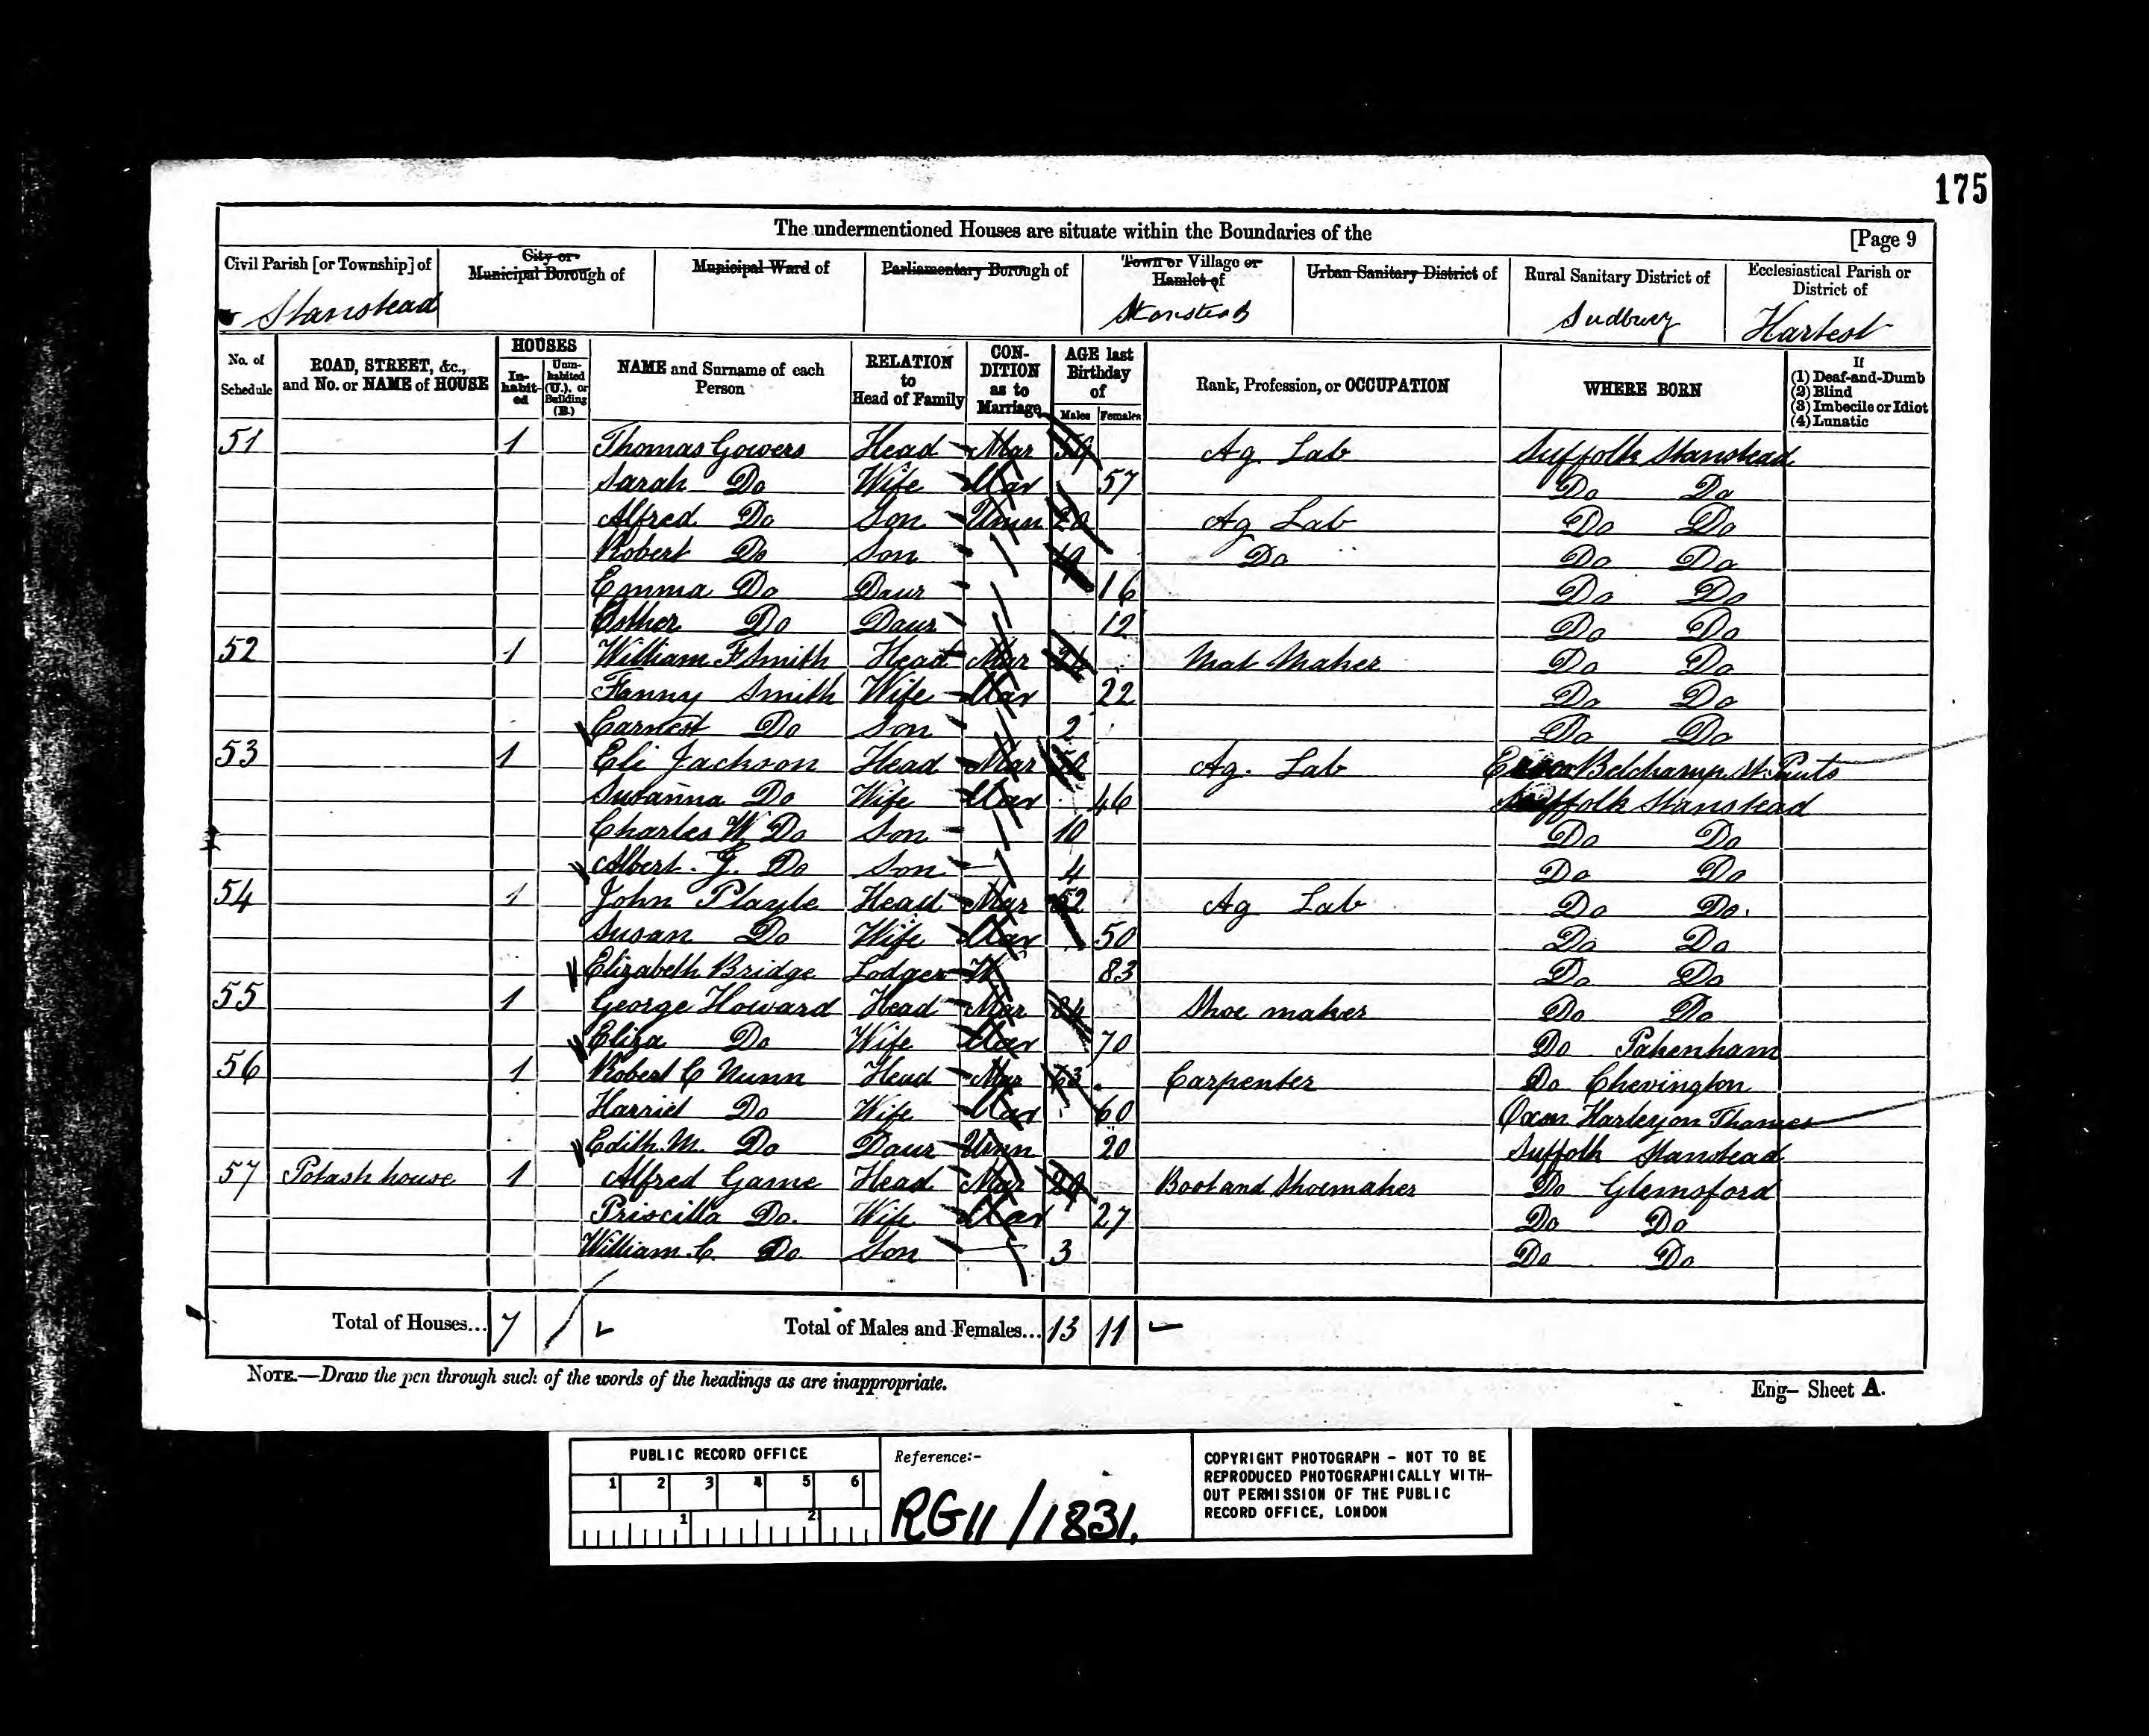 175
The undermentioned Houses are situate within the Boundaries of the [Page 9
Civil Parish [or Township] of City or Municipal Borough of Municipal Ward of Parliamentary Borough of Town or Village or Hamlet of Urban Sanitary District of Rural Sanitary District of Ecclesiastical Parish or District of
Stanstead Stanstead Sudbury Hartest
No. of Schedule ROAD, STREET, &c., and No. or NAME of HOUSE HOUSES Inhabited Uninhabited (U.), or Building (B.) NAME and Surname of each Person RELATION to Head of Family CONDITION as to Marriage AGE last Birthday of Males Females Rank, Profession, or OCCUPATION WHERE BORN If (1) Deaf-and-Dumb (2) Blind (3) Imbecile or Idiot (4) Lunatic
51 1 Thomas Gowers Head Mar 59 Ag. Lab Suffolk Stanstead
Sarah Do Wife Mar 57 Do Do
Alfred Do Son Unm 20 Ag Lab Do Do
Robert Do Son Do Do Do
Emma Do Daur 16 Do Do
Esther Do Daur 12 Do Do
52 1 William F Smith Head Mar Mat Maker Do Do
Fanny Smith Wife Mar 22 Do Do
Earnest Do Son 2 Do Do
53 1 Eli Jackson Head Mar Ag. Lab Essex Belchamp St. Pauls
Susanna Do Wife Mar 46 Suffolk Stanstead
Charles W Do Son 10 Do Do
Albert J. Do Son 4 Do Do
54 1 John Playle Head Mar 52 Ag Lab Do Do.
Susan Do Wife Mar 50 Do Do
Elizabeth Bridge Lodger W 83 Do Do
55 1 George Howard Head Mar Shoe maker Do Do
Eliza Do Wife Mar 70 Do Pakenham
56 1 Robert C Nunn Head Mar 63 Carpenter Do Chevington
Harriet Do Wife Mar 60 Oxon Harley on Thames
Edith. M. Do Daur Unm 20 Suffolk Stanstead
57 Potash house 1 Alfred Game Head Mar 29 Boot and Shoemaker Do Glemsford
Priscilla Do. Wife Mar 27 Do Do
William. C. Do Son 3 Do Do
Total of Houses... 7 Total of Males and Females... 13 11
NOTE.—Draw the pen through such of the words of the headings as are inappropriate.
Eng— Sheet A.
PUBLIC RECORD OFFICE
1 2 3 4 5 6
1 2
Reference:-
RG11/1831.
COPYRIGHT PHOTOGRAPH - NOT TO BE
REPRODUCED PHOTOGRAPHICALLY WITH-
OUT PERMISSION OF THE PUBLIC
RECORD OFFICE, LONDON